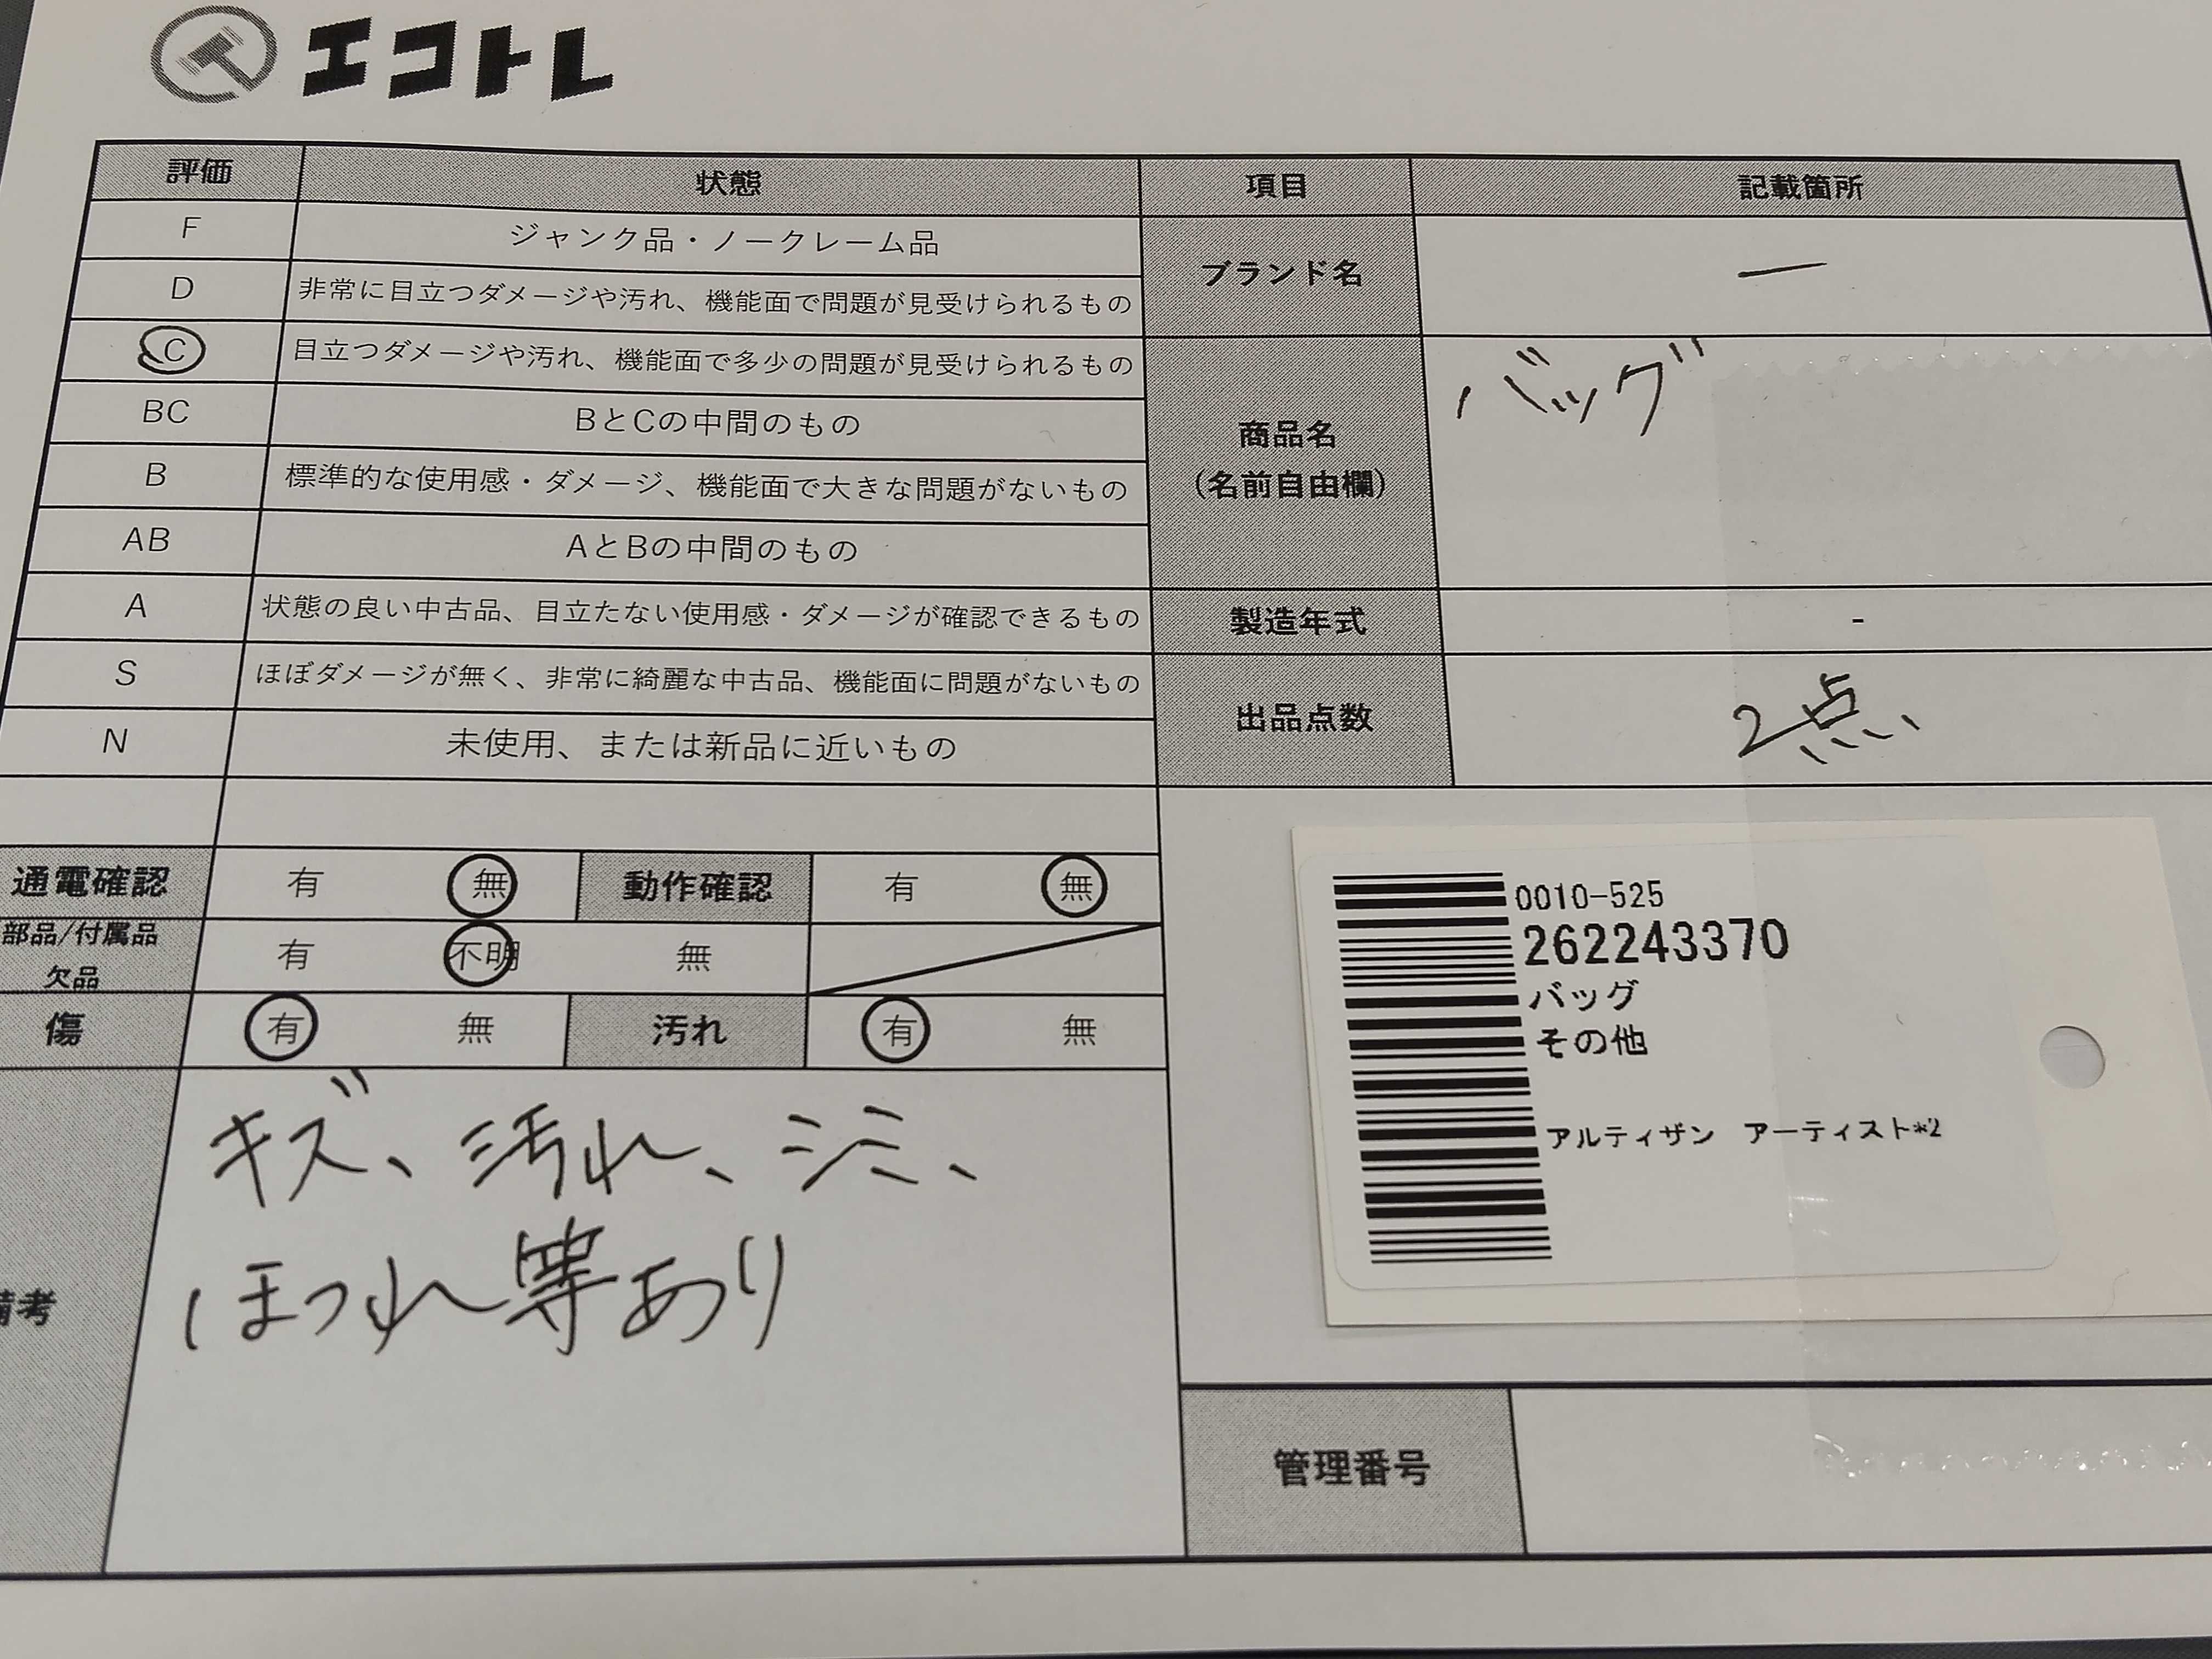 エコトレ
評価 状態 項目 記載箇所
F ジャンク品・ノークレーム品
D 非常に目立つダメージや汚れ、機能面で問題が見受けられるもの
ブランド名 ー
C 目立つダメージや汚れ、機能面で多少の問題が見受けられるもの
BC BとCの中間のもの
B 標準的な使用感・ダメージ、機能面で大きな問題がないもの
商品名
(名前自由欄)
バッグ
AB AとBの中間のもの
A 状態の良い中古品、目立たない使用感・ダメージが確認できるもの
製造年式 -
S ほぼダメージが無く、非常に綺麗な中古品、機能面に問題がないもの
出品点数 2点
N 未使用、または新品に近いもの
通電確認 有 無 動作確認 有 無
部品/付属品
欠品
有 不明 無
傷 有 無 汚れ 有 無
備考
キズ、汚れ、シミ、
ほつれ等あり
0010-525
262243370
バッグ
その他
アルティザン アーティスト*2
管理番号